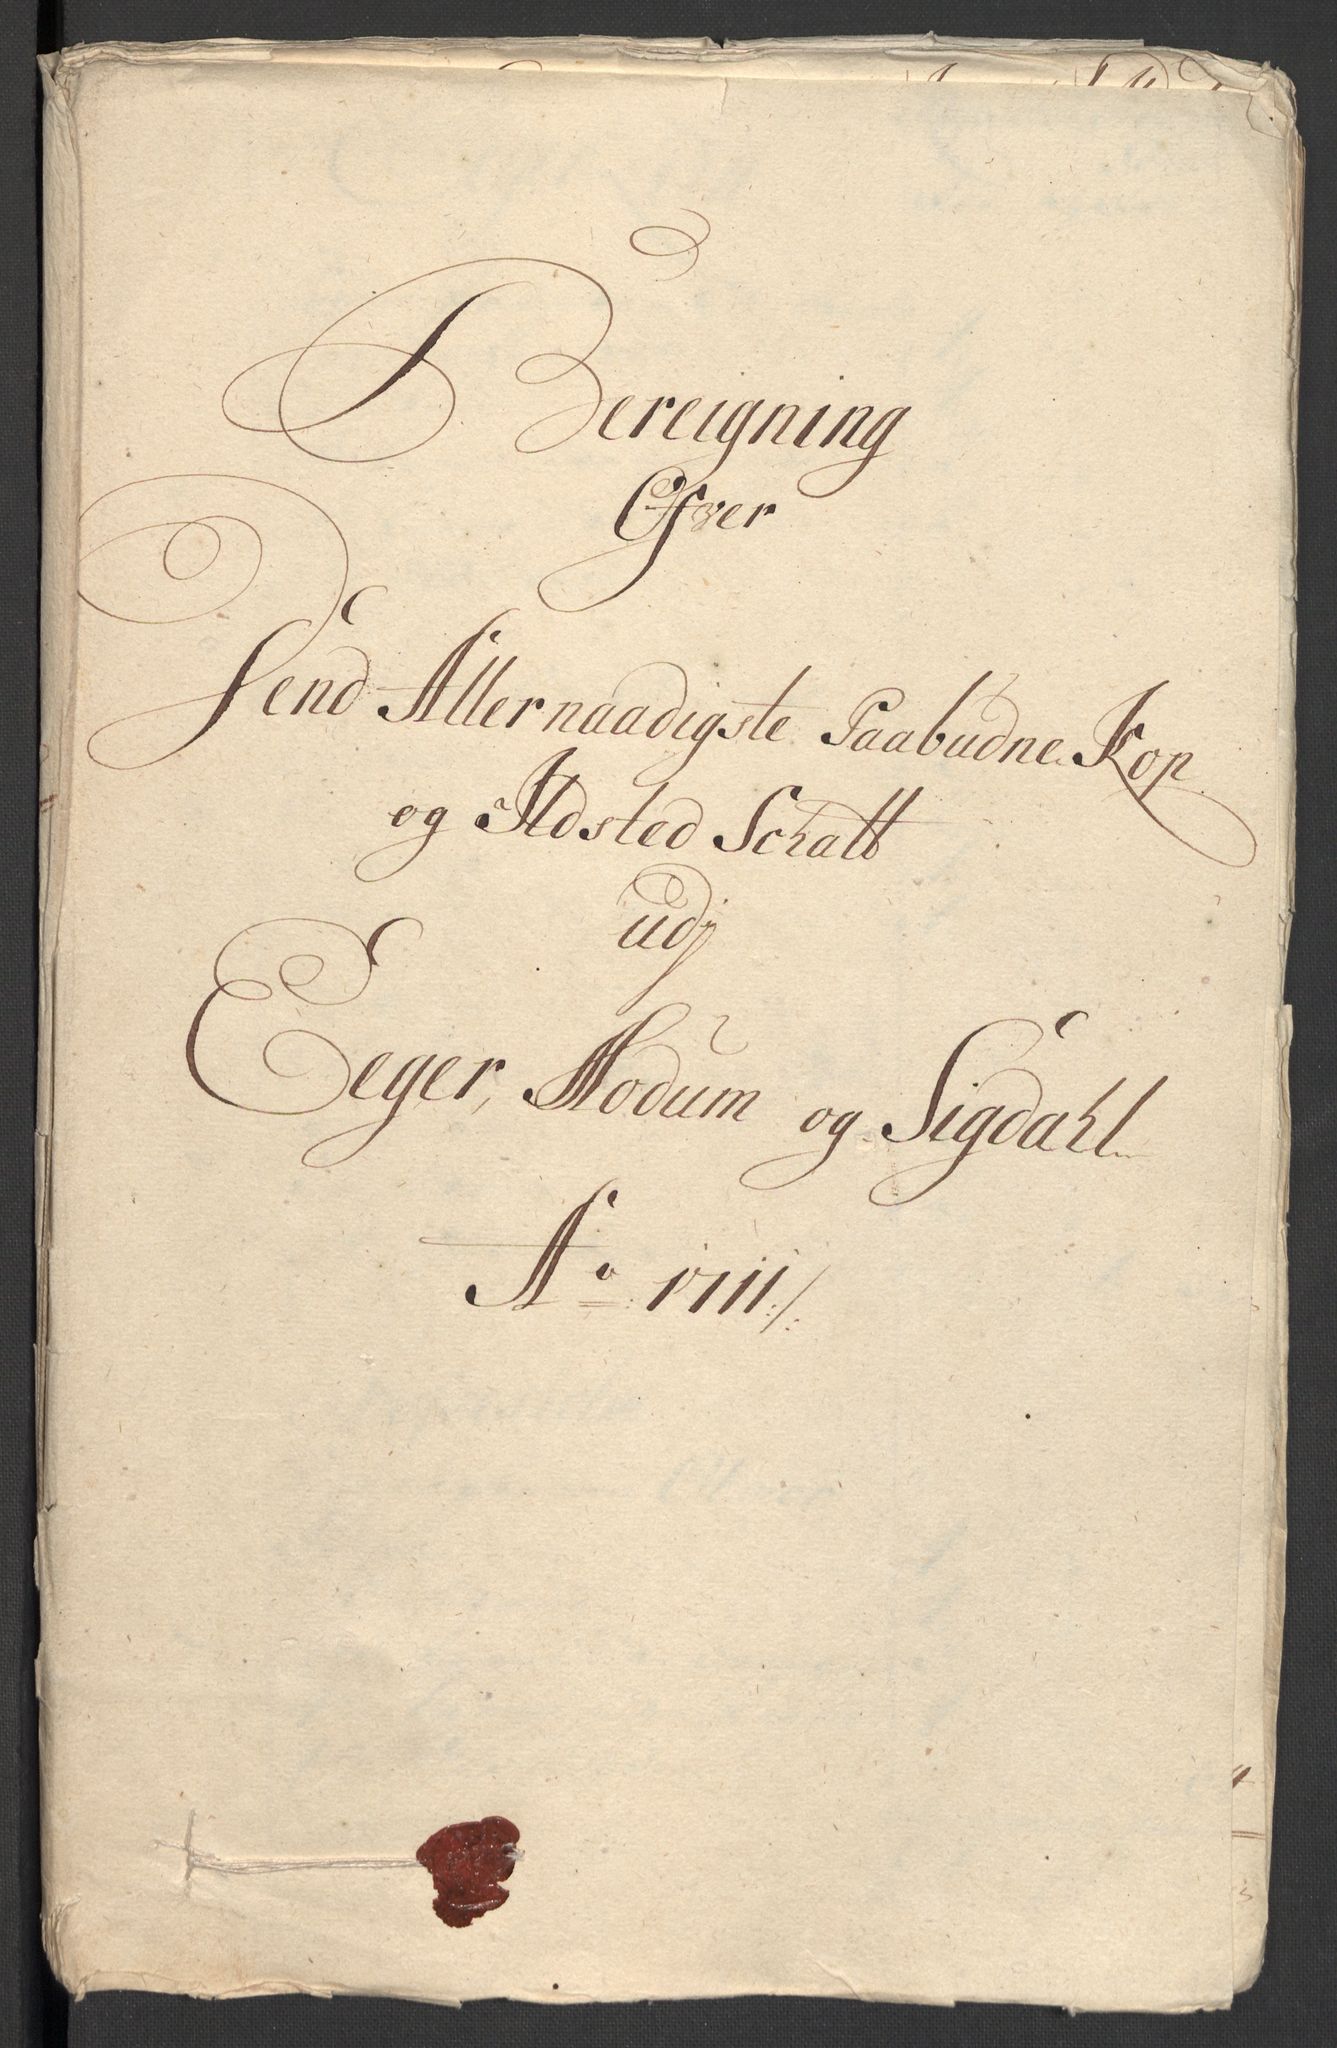 Bereigning
Ofver
Dend Allernaadigste Paabudne Kop
og Ildsted Schatt
udj
Eeger, Modum og Sigdahl
Ao 1711/: